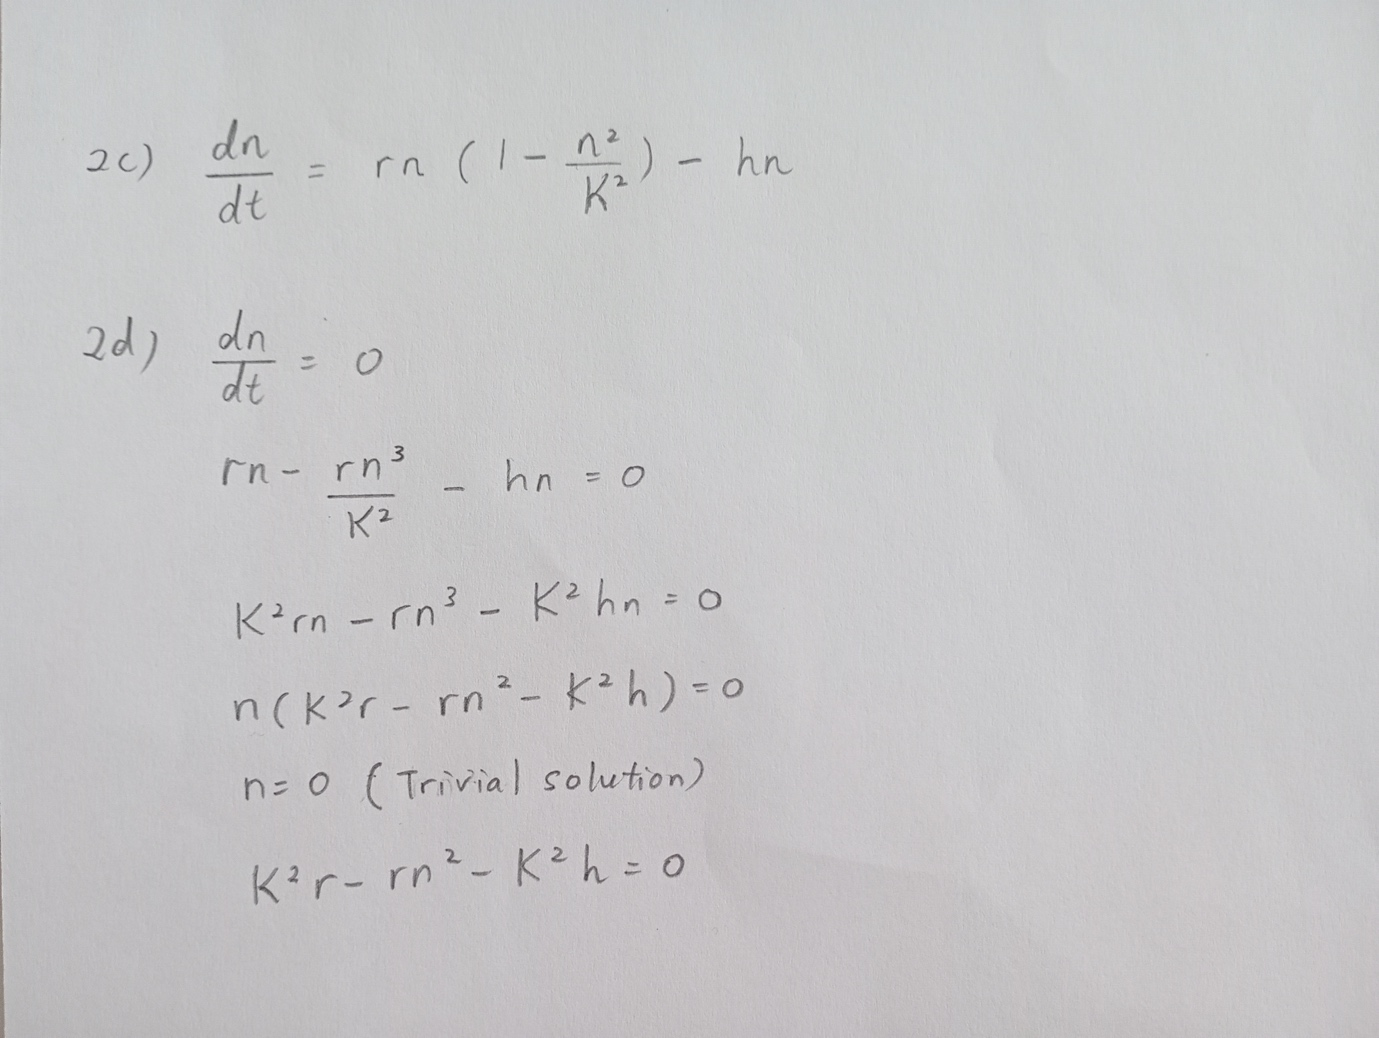 2c) dn/dt = rn (1 - n²/K²) - hn
2d) dn/dt = 0
rn - rn³/K² - hn = 0
K²rn - rn³ - K²hn = 0
n(K²r - rn² - K²h) = 0
n = 0 (Trivial solution)
K²r - rn² - K²h = 0